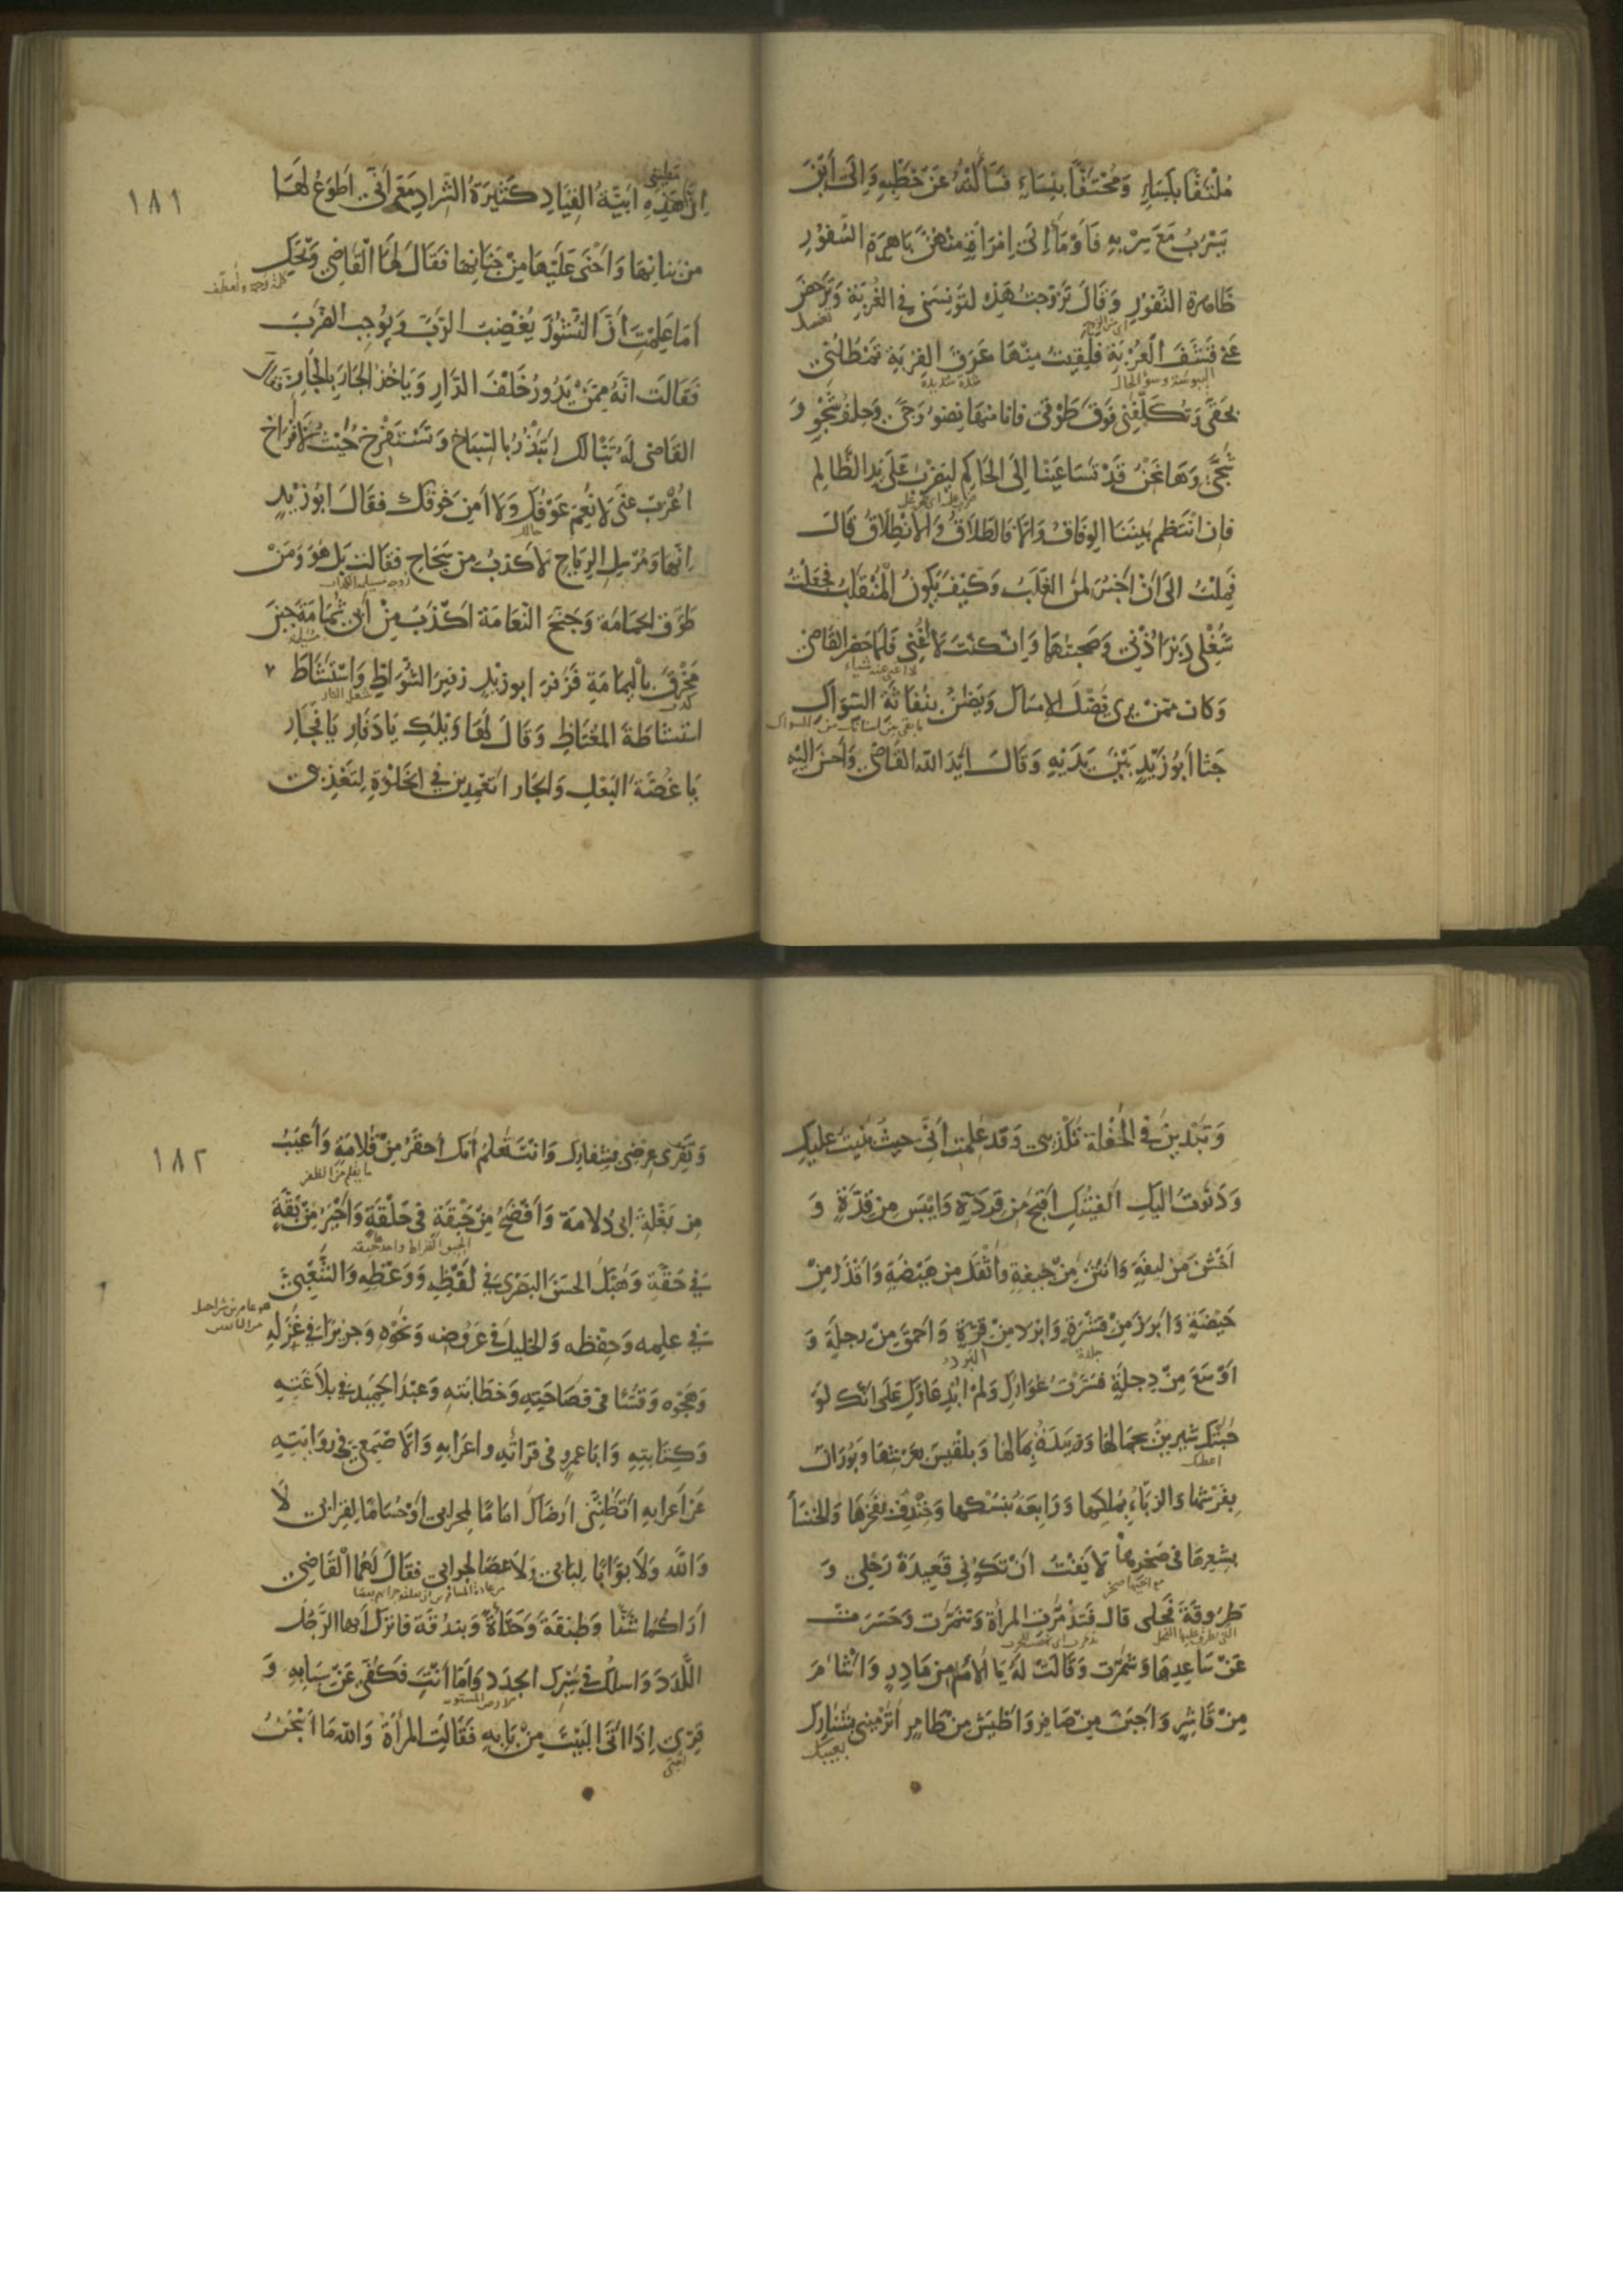 مُلْتَفًّا بِكِسَاءٍ وَمُحْتَفًّا بِنِسَاءٍ فَسَأَلْتُهُ عَنْ خَطْبِهِ وَإِلَى أَيْنَ
يَسْرُبُ مَعَ سِرْبِهِ فَأَوْمَأَ إِلَى امْرَأَةٍ مِنْهُنَّ بَاهِرَةِ السُّفُورِ
ظَاهِرَةِ النُّفُورِ وَقَالَ تَزَوَّجْتُ هَذِهِ لِتُونِسَنِي فِي الْغُرْبَةِ وَتَرْحَضَ
تغسل
عَنِّي قَشَفَ الْعُزْبَةِ فَلَقِيتُ مِنْهَا عَرَقَ الْقِرْبَةِ تَمْطُلُنِي
اليبوسة وسوء الحال
شدة شديدة
بِحَقِّي وَتُكَلِّفُنِي فَوْقَ طَوْقِي فَأَنَا مِنْهَا نِضْوُ وَجًى وَحِلْفُ شَجْوٍ وَ
شَجًى وَهَا نَحْنُ قَدْ تَسَاعَيْنَا إِلَى الْحَاكِمِ لِيَضْرِبَ عَلَى يَدِ الظَّالِمِ
فَإِنِ انْتَظَمَ بَيْنَنَا الْوِفَاقُ وَإِلَّا فَالطَّلَاقُ وَالْانْطِلَاقُ قَالَ
فَمِلْتُ إِلَى أَنْ أَخْبُرَ لِمَنِ الْغَلَبُ وَكَيْفَ يَكُونُ الْمُنْقَلَبُ فَجَعَلْتُ
شُغْلِي دَبْرَ أُذُنِي وَصَحِبْتُهَا وَإِنْ كُنْتُ لَا أُغْنِي فَلَمَّا حَضَرَ الْقَاضِي
وَكَانَ مِمَّنْ يَرَى فَضْلَ الْإِمْسَاكِ وَيَضِنُّ بِنُفَاثَةِ السِّوَاكِ
جَثَا أَبُو زَيْدٍ بَيْنَ يَدَيْهِ وَقَالَ أَيَّدَ اللهُ الْقَاضِيَ وَأَحْسَنَ إِلَيْهِ
١٨١
مطيتي
إِنَّ هَذِهِ أَبِيَّةُ الْقِيَادِ كَثِيرَةُ الشِّرَادِ مَعَ أَنِّي أَطْوَعُ لَهَا
مِنْ بَنَانِهَا وَأَحْنَى عَلَيْهَا مِنْ جَنَانِهَا فَقَالَ لَهَا الْقَاضِي وَيْحَكِ
أَمَا عَلِمْتِ أَنَّ النُّشُوزَ يُغْضِبُ الرَّبَّ وَيُوجِبُ الضَّرْبَ
فَقَالَتْ إِنَّهُ مِمَّنْ يَدُورُ خَلْفَ الدَّارِ وَيَأْخُذُ الْجَارَ بِالْجَارِ فَقَالَ
الْقَاضِي لَهُ تَبًّا لَكَ أَتَبْذُرُ بِالسِّبَاخِ وَتَسْتَفْرِخُ حَيْثُ لَا فْرَاخَ
اعْزُبْ عَنِّي لَا نَعِمَ عَوْفُكَ وَلَا أَمِنَ خَوْفُكَ فَقَالَ أَبُو زَيْدٍ
حالك
إِنَّهَا وَمُرْسِلِ الرِّيَاحِ لَأَكْذَبُ مِنْ سَجَاحِ فَقَالَتْ بَلْ هُوَ وَمَنْ
زوجة مسيلمة الكذاب
طَوَّقَ الْحَمَامَةَ وَجَنَّحَ النَّعَامَةَ أَكْذَبُ مِنْ أَبِي ثُمَامَةَ حِينَ
مسيلمة
مَخْرَقَ بِالْيَمَامَةِ فَزَفَرَ أَبُو زَيْدٍ زَفِيرَ الشُّوَاظِ وَاسْتَشَاطَ
كذب
شعل النار
اسْتِشَاطَةَ الْمُغْتَاظِ وَقَالَ لَهَا وَيْلَكِ يَا دَفَارِ يَا فَجَارِ
يَا غُصَّةَ الْبَعْلِ وَالْجَارِ أَتَعْمِدِينَ فِي الْخَلْوَةِ لِتَعْذِيبِي
وَتُبْدِينَ فِي الْحَفْلَةِ تَكْذِيبِي وَقَدْ عَلِمْتِ أَنِّي حِينَ بَنَيْتُ عَلَيْكِ
وَدَنَوْتُ إِلَيْكِ أَلْفَيْتُكِ أَقْبَحَ مِنْ قِرْدَةٍ وَأَيْبَسَ مِنْ قِدَّةٍ وَ
أَخْشَنَ مِنْ لِيفَةٍ وَأَنْتَنَ مِنْ جِيفَةٍ وَأَثْقَلَ مِنْ هَيْضَةٍ وَأَقْذَرَ مِنْ
حَيْضَةٍ وَأَبْرَزَ مِنْ قِشْرَةٍ وَأَبْرَدَ مِنْ قِرَّةٍ وَأَحْمَقَ مِنْ رِجْلَةٍ وَ
جلدة
البرد
أَوْسَعَ مِنْ دِجْلَةَ فَسَتَرْتُ عَوَارَكِ وَلَمْ أُبْدِ عَارَكِ عَلَى أَنَّكِ لَوْ
حَبَتْكِ شِيرِينُ بِجَمَالِهَا وَزُبَيْدَةُ بِمَالِهَا وَبِلْقِيسُ بِعَرْشِهَا وَبُورَانُ
اعطتك
بِفَرْشِهَا وَالزَّبَّاءُ بِمُلْكِهَا وَرَابِعَةُ بِنُسْكِهَا وَخِنْدِفُ بِفَخْرِهَا وَالْخَنْسَاءُ
بِشِعْرِهَا فِي صَخْرِهَا لَأَنِفْتُ أَنْ تَكُونِي قَعِيدَةَ رَحْلِي وَ
طَرُوقَةَ فَحْلِي قَالَ فَتَذَمَّرَتِ الْمَرْأَةُ وَتَنَمَّرَتْ وَحَسَرَتْ
عَنْ سَاعِدِهَا وَشَمَّرَتْ وَقَالَتْ لَهُ يَا أَلْأَمَ مِنْ مَادِرٍ وَأَشْأَمَ
مِنْ قَاشِرٍ وَأَجْبَنَ مِنْ صَافِرٍ وَأَطْيَشَ مِنْ طَامِرٍ أَتَرْمِينِي بِشَنَارِكَ
بعيبك
١٨٢
وَتَفْرِي عِرْضِي بِشِفَارِكَ وَأَنْتَ تَعْلَمُ أَنَّكَ أَحْقَرُ مِنْ قُلَامَةٍ وَأَعْيَبُ
ما يقلم من الظفر
مِنْ بَغْلَةِ أَبِي دُلَامَةَ وَأَفْضَحُ مِنْ حَبْقَةٍ فِي حَلْقَةٍ وَأَحْيَرُ مِنْ بَقَّةٍ
فِي حُقَّةٍ وَهَبْكَ الْحَسَنَ الْبَصْرِيَّ فِي لَفْظِهِ وَوَعْظِهِ وَالشَّعْبِيَّ
فِي عِلْمِهِ وَحِفْظِهِ وَالْخَلِيلَ فِي عَرُوضِهِ وَنَحْوِهِ وَجَرِيرًا فِي غَزَلِهِ
وَهَجْوِهِ وَقُسًّا فِي فَصَاحَتِهِ وَخَطَابَتِهِ وَعَبْدَ الْحَمِيدِ فِي بَلَاغَتِهِ
وَكِتَابَتِهِ وَأَبَا عَمْرٍو فِي قِرَائَتِهِ وَإِعْرَابِهِ وَالْأَصْمَعِيَّ فِي رِوَايَتِهِ
عَنْ أَعْرَابِهِ أَتَظُنُّنِي أَرْضَاكَ إِمَامًا لِمِحْرَابِي أَوْ حُسَامًا لِقِرَابِي لَا
وَاللهِ وَلَا بَوَّابًا لِبَابِي وَلَا عَصًا لِجِرَابِي فَقَالَ لَهُمَا الْقَاضِي
أَرَاكُمَا شَنًّا وَطَبَقَةَ وَحِدَأَةً وَبُنْدُقَةَ فَاتْرُكْ أَيُّهَا الرَّجُلُ
اللَّدَدَ وَاسْلُكْ فِي سَيْرِكَ الْجَدَدَ وَأَمَّا أَنْتِ فَكُفِّي عَنْ سِبَابِهِ وَ
الارض المستوية
قِرِّي إِذَا أَتَى الْبَيْتَ مِنْ بَابِهِ فَقَالَتِ الْمَرْأَةُ وَاللهِ مَا أَسْجُنُ